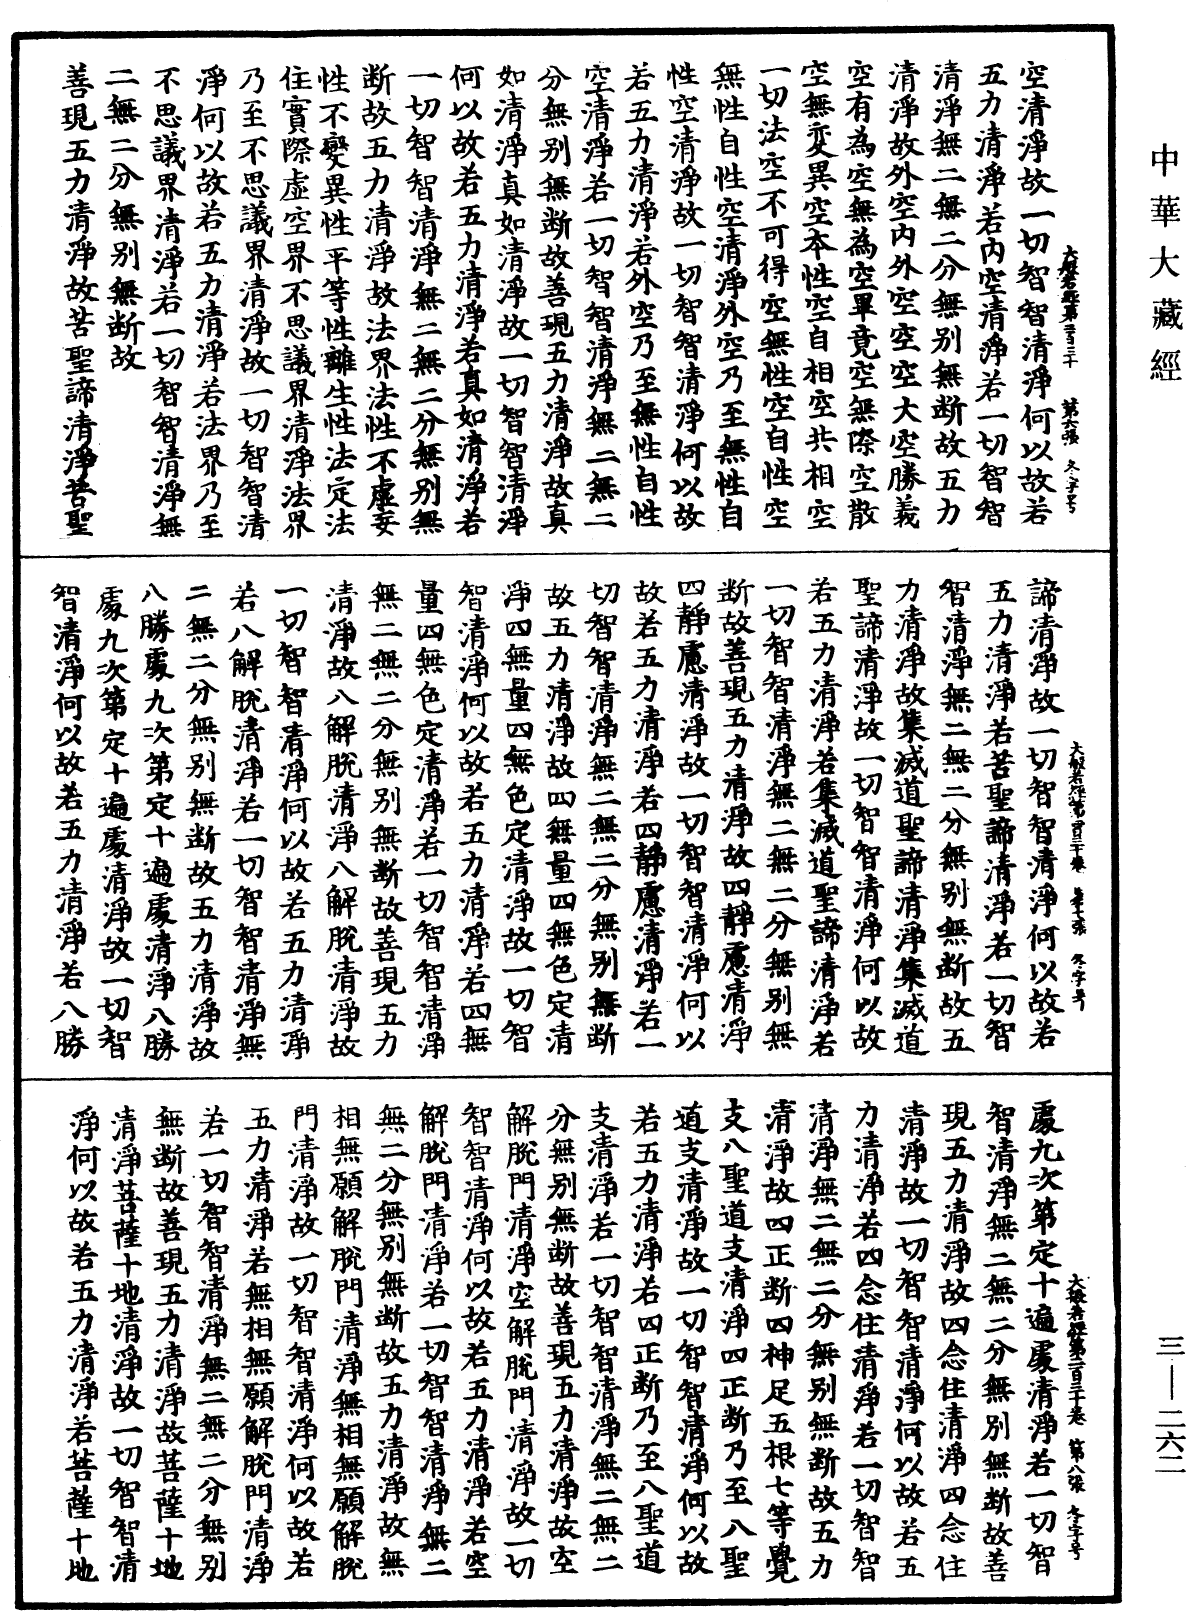 中華大藏經
三—二六二
空清淨故一切智智清淨何以故若
五力清淨若內空清淨若一切智智
清淨無二無二分無别無断故五力
清淨故外空內外空空空大空勝義
空有為空無為空畢竟空無際空散
空無變異空本性空自相空共相空
一切法空不可得空無性空自性空
無性自性空清淨外空乃至無性自
性空清淨故一切智智清淨何以故
若五力清淨若外空乃至無性自性
空清淨若一切智智清淨無二無二
分無别無断故善現五力清淨故真
如清淨真如清淨故一切智智清淨
何以故若五力清淨若真如清淨若
一切智智清淨無二無二分無别無
断故五力清淨故法界法性不虛妄
性不變異性平等性離生性法定法
住實際虛空界不思議界清淨法界
乃至不思議界清淨故一切智智清
淨何以故若五力清淨若法界乃至
不思議界清淨若一切智智清淨無
二無二分無别無断故
善現五力清淨故苦聖諦清淨苦聖
大般若經第二百三十卷 第七張 冬字号
諦清淨故一切智智清淨何以故若
五力清淨若苦聖諦清淨若一切智
智清淨無二無二分無别無断故五
力清淨故集滅道聖諦清淨集滅道
聖諦清淨故一切智智清淨何以故
若五力清淨若集滅道聖諦清淨若
一切智智清淨無二無二分無别無
断故善現五力清淨故四靜慮清淨
四靜慮清淨故一切智智清淨何以
故若五力清淨若四靜慮清淨若一
切智智清淨無二無二分無别無断
故五力清淨故四無量四無色定清
淨四無量四無色定清淨故一切智
智清淨何以故若五力清淨若四無
量四無色定清淨若一切智智清淨
無二無二分無别無断故善現五力
清淨故八解脫清淨八解脫清淨故
一切智智清淨何以故若五力清淨
若八解脫清淨若一切智智清淨無
二無二分無别無断故五力清淨故
八勝處九次第定十遍處清淨八勝
處九次第定十遍處清淨故一切智
智清淨何以故若五力清淨若八勝
大般若經第二百三十卷 第八張 冬字号
處九次第定十遍處清淨若一切智
智清淨無二無二分無别無断故善
現五力清淨故四念住清淨四念住
清淨故一切智智清淨何以故若五
力清淨若四念住清淨若一切智智
清淨無二無二分無别無断故五力
清淨故四正断四神足五根七等覺
支八聖道支清淨四正断乃至八聖
道支清淨故一切智智清淨何以故
若五力清淨若四正断乃至八聖道
支清淨若一切智智清淨無二無二
分無别無断故善現五力清淨故空
解脫門清淨空解脫門清淨故一切
智智清淨何以故若五力清淨若空
解脫門清淨若一切智智清淨無二
無二分無别無断故五力清淨故無
相無願解脫門清淨無相無願解脫
門清淨故一切智智清淨何以故若
五力清淨若無相無願解脫門清淨
若一切智智清淨無二無二分無别
無断故善現五力清淨故菩薩十地
清淨菩薩十地清淨故一切智智清
淨何以故若五力清淨若菩薩十地